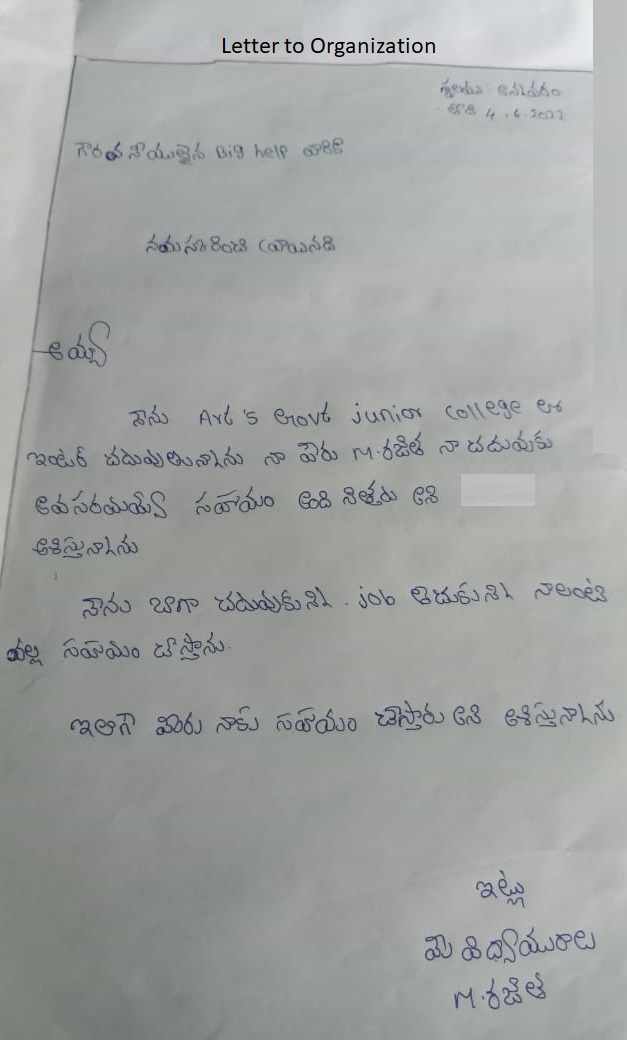 Letter to Organization
స్థలము అనుపురం
తేది 4.6.2022
గౌరవనీయులైన Big help వారికి
నమస్కరించి వ్రాయునది
అయ్యా
నేను Art's Govt junior college లో
ఇంటర్ చదువుతున్నాను నా పేరు M.రజిత నా చదువుకు
అవసరమయ్యే సహాయం అంది సిత్తరు అని
ఆశిస్తున్నాను
నేను బాగా చదువుకుని. job తెచుకుని నాలంటి
వల్ల సహాయం చేస్తాను.
ఇలాగే మీరు నాకు సహాయం చేస్తారు అని ఆశిస్తున్నాను
ఇట్లు
మీ విధ్యాయురాలు
M.రజిత